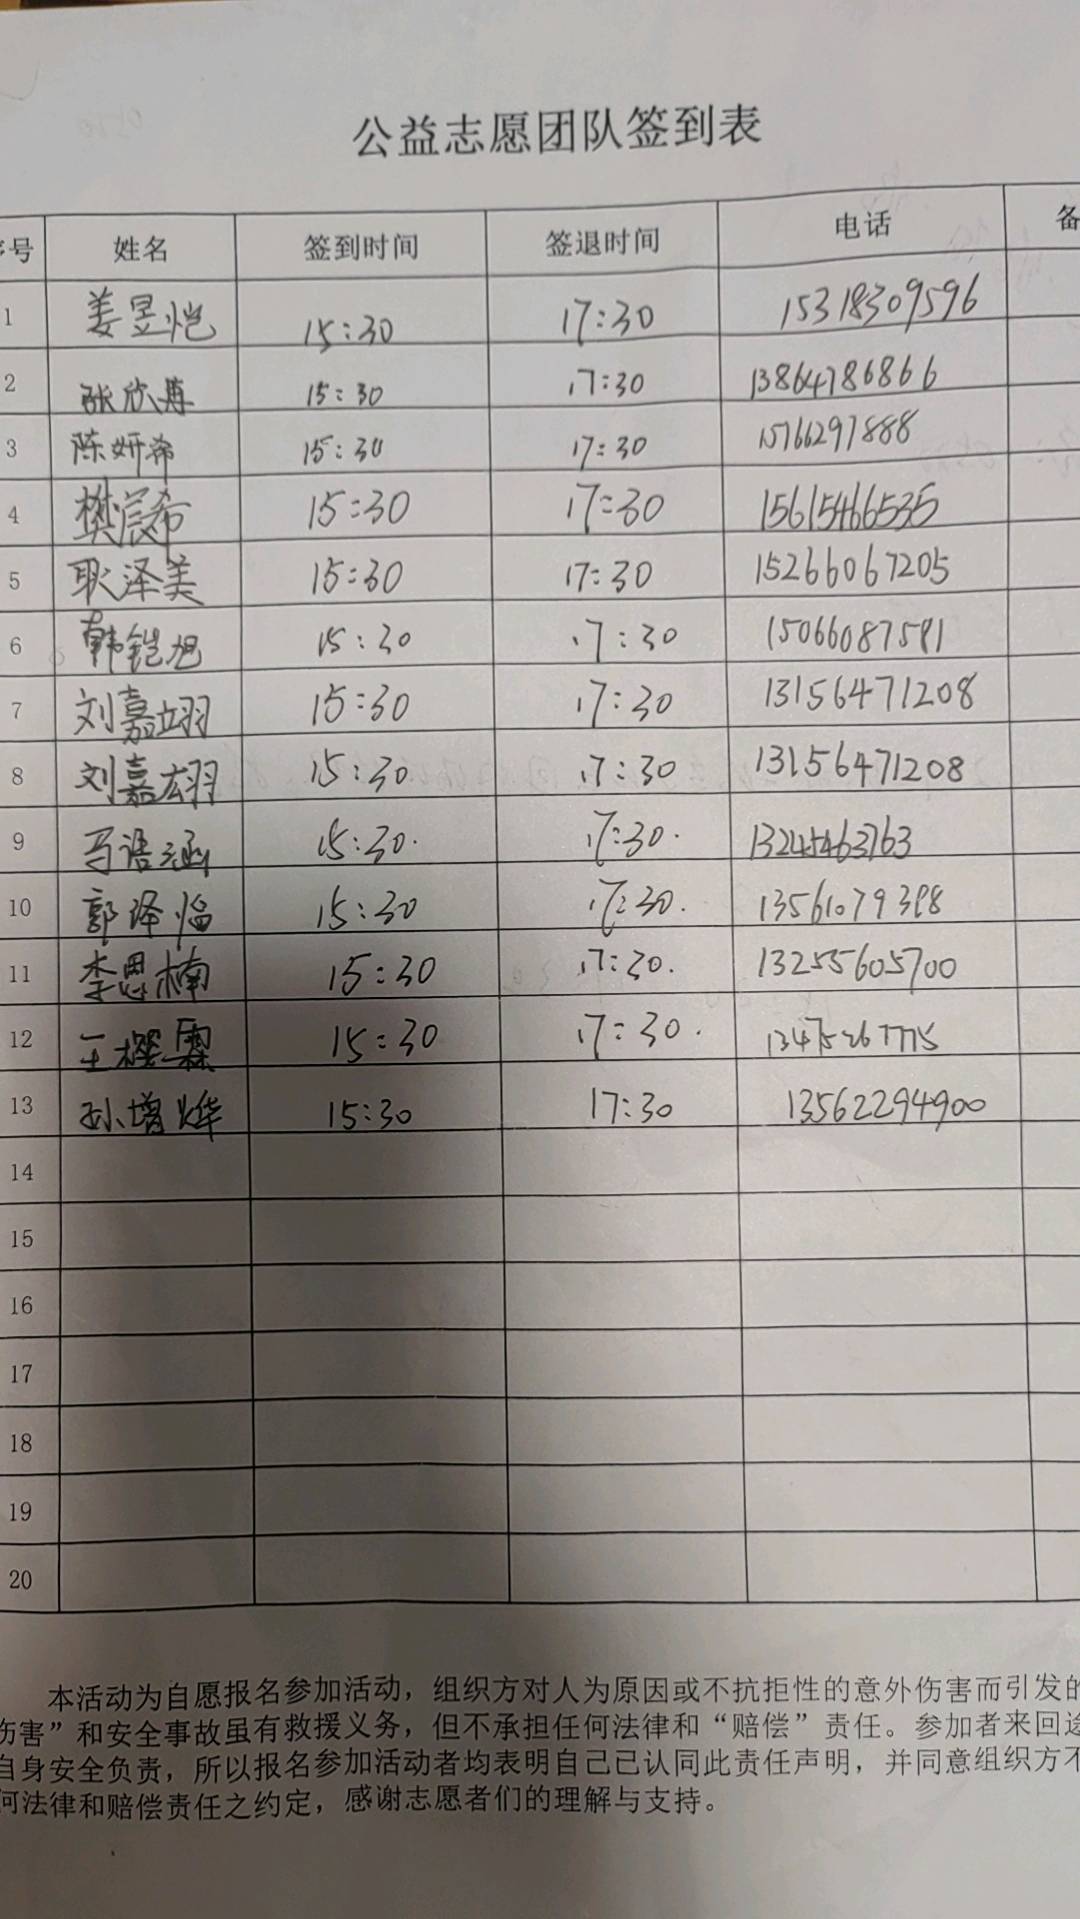 公益志愿团队签到表
序号 姓名 签到时间 签退时间 电话 备
1 姜昱恺 15:30 17:30 15318309596
2 张欣苒 15:30 17:30 13864786866
3 陈妍希 15:30 17:30 15766297888
4 樊宸希 15:30 17:30 15615466535
5 耿泽美 15:30 17:30 15266067205
6 韩铠旭 15:30 17:30 15066087581
7 刘嘉翊 15:30 17:30 13156471208
8 刘嘉翃 15:30 17:30 13156471208
9 马语涵 15:30. 17:30. 13245463763
10 郭泽 15:30 17:30. 13561079398
11 李思楠 15:30 17:30. 13255605700
12 王樱霖 15:30 17:30. 13475267775
13 孙增烨 15:30 17:30 13562294900
14
15
16
17
18
19
20
本活动为自愿报名参加活动，组织方对人为原因或不抗拒性的意外伤害而引发的
伤害”和安全事故虽有救援义务，但不承担任何法律和“赔偿”责任。参加者来回途
自身安全负责，所以报名参加活动者均表明自己已认同此责任声明，并同意组织方不
何法律和赔偿责任之约定，感谢志愿者们的理解与支持。